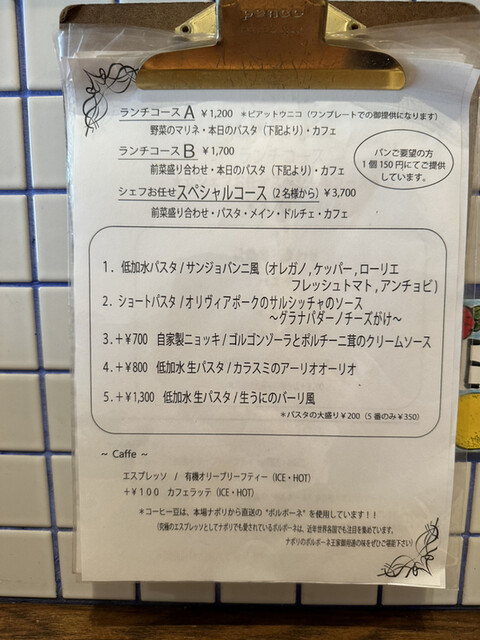 penco
ランチコース A ￥1,200 ＊ピアットウニコ（ワンプレートでの御提供になります）
野菜のマリネ・本日のパスタ（下記より）・カフェ
ランチコース B ￥1,700
前菜盛り合わせ・本日のパスタ（下記より）・カフェ
シェフお任せスペシャルコース（2名様から）￥3,700
前菜盛り合わせ・パスタ・メイン・ドルチェ・カフェ
パンご要望の方
1個150円にてご提供
しています。
1．低加水パスタ/サンジョバンニ風（オレガノ,ケッパー,ローリエ
フレッシュトマト,アンチョビ）
2．ショートパスタ/オリヴィアポークのサルシッチャのソース
～グラナパダーノチーズがけ～
3.＋￥700 自家製ニョッキ/ゴルゴンゾーラとポルチーニ茸のクリームソース
4.＋￥800 低加水生パスタ/カラスミのアーリオオーリオ
5.＋￥1,300 低加水生パスタ/生うにのバーリ風
＊パスタの大盛り￥200（5番のみ￥350）
～ Caffe ～
エスプレッソ / 有機オリーブリーフティー（ICE・HOT）
＋￥100 カフェラッテ（ICE・HOT）
＊コーヒー豆は、本場ナポリから直送の"ボルボーネ"を使用しています！！
（究極のエスプレッソとしてナポリでも愛されているボルボーネは、近年世界各国でも注目を集めています。
ナポリのボルボーネ王家御用達の味をぜひご堪能下さい）